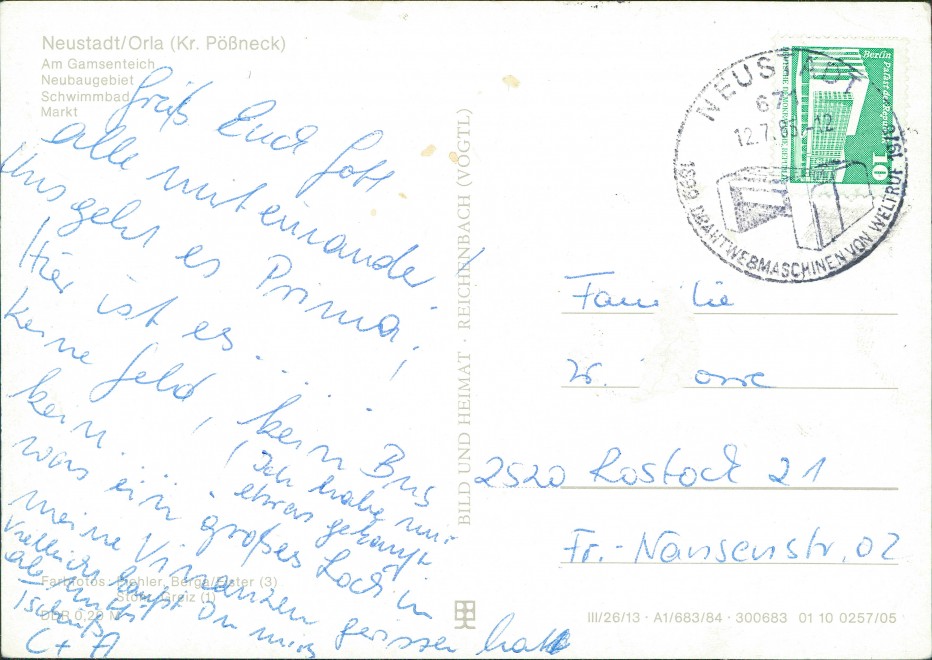 Neustadt/Orla (Kr. Pößneck)
Am Gamsenteich
Neubaugebiet
Schwimmbad
Markt
Grüß Euch Gott
alle miteinander!
Uns geht es Prima!
Hier ist es . . . . !
Keine Geld, kein Bus
kein . . . . ! Ich habe mir
etwas gekauft
was ein großes Loch in
meine Vinanzen gerissen hatt
Vielleicht Du mich
NEUSTADT
671
12.7.85-12
1899 DRAHTWEBMASCHINEN VON WELTRUF
Berlin Palast der Republik
10
BILD UND HEIMAT · REICHENBACH (VOGTL)
Familie
W. osse
2520 Rostock 21
Fr.-Nansenstr. 02
Farbfotos: Bichler, Berga/Elster (3)
Greiz (1)
DDR 0,20 M
III/26/13 · A1/683/84 · 300683 01 10 0257/05